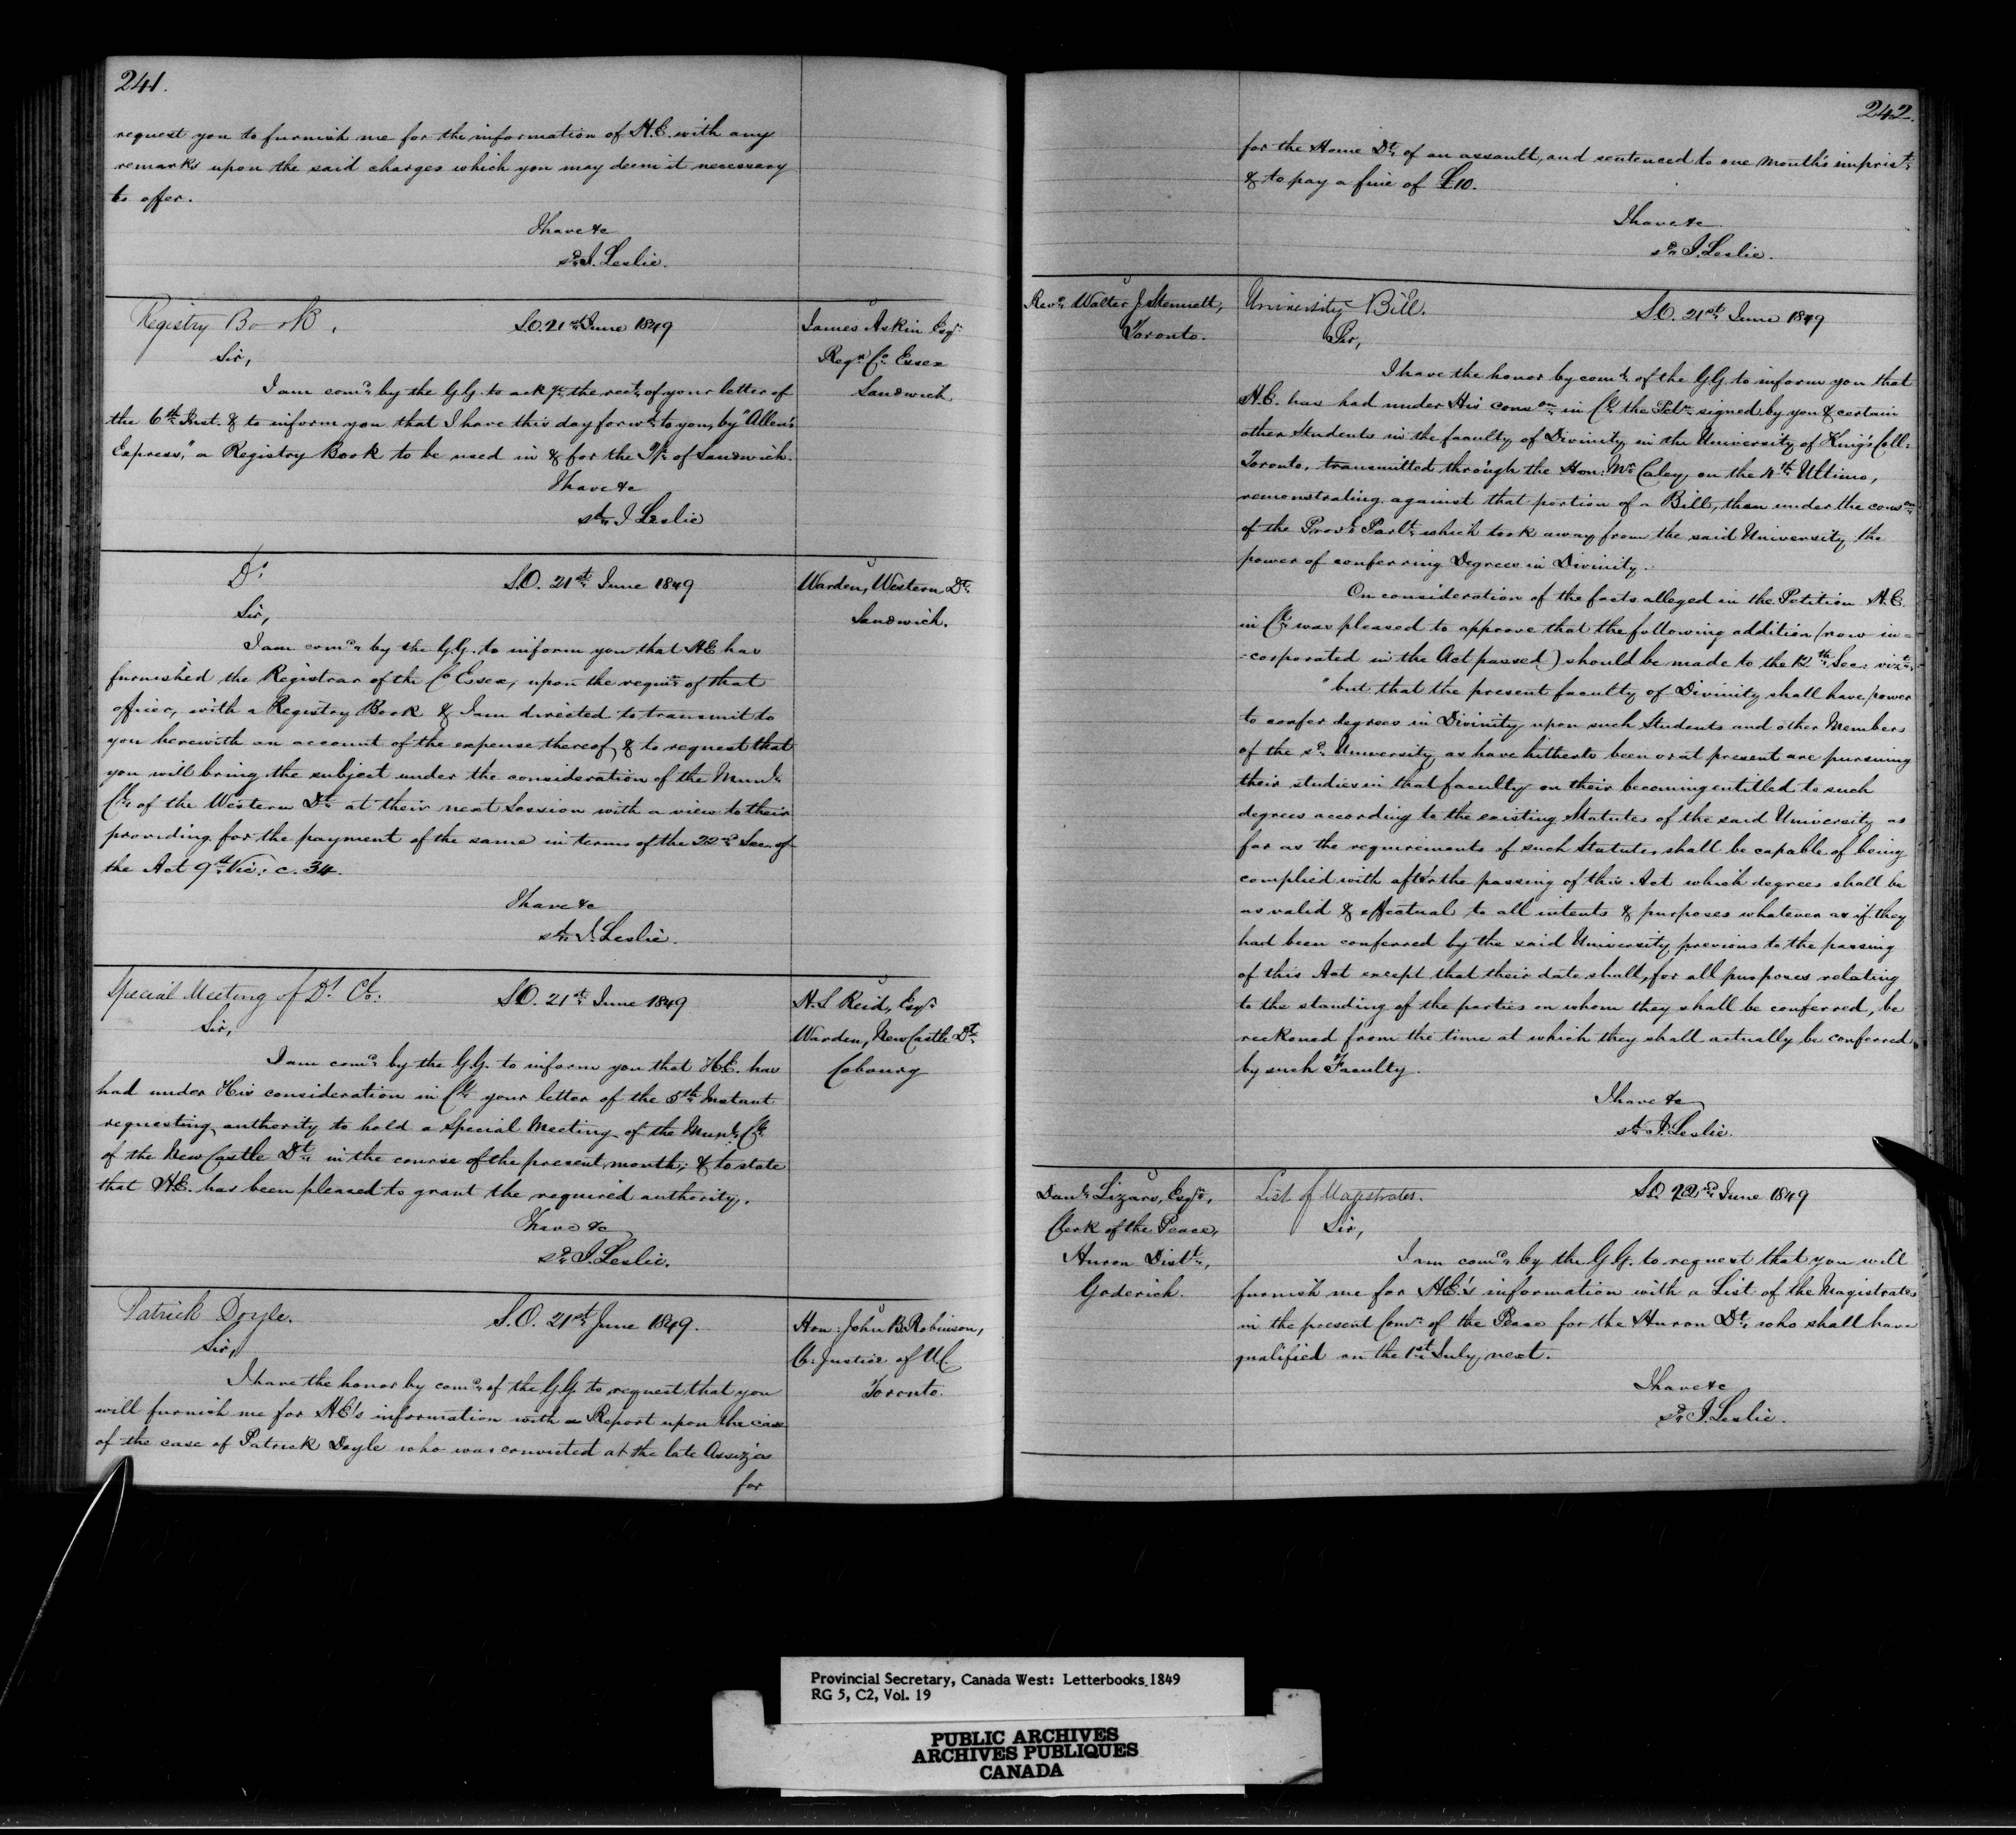 241.
request you to furnish me for the information of H.E. with any
remarks upon the said charges which you may deem it necessary
to offer.
I have &c
sd. J. Leslie.
Registry Book.
S.O. 21st June 1849
James Askin Esqr
Regr Co Essex
Sandwich
Sir,
I am comd by the G.G. to ackge the rect of your letter of
the 6th Inst. & to inform you that I have this day forwd to you, by "Allen's
Express," a Registry Book to be used in & for the T/p of Sandwich.
I have &c
sd J Leslie
Do
S.O. 21st June 1849
Warden, Western Dt
Sandwich.
Sir,
I am comd by the G.G. to inform you that HE has
furnished the Registrar of the Co Essex, upon the requn of that
officer, with a Registry Book & I am directed to transmit to
you herewith an account of the expense thereof, & to request that
you will bring the subject under the consideration of the Munl
Cl of the Western Dt at their next Session with a view to their
providing for the payment of the same in terms of the 22nd Sec. of
the Act 9th Vic: c. 34.
I have &c
sd J. Leslie.
Special Meeting of Dt Cl:
S.O. 21st June 1849
H.S Reid, Esqr
Warden, NewCastle Dt
Cobourg
Sir,
I am comd by the G.G. to inform you that H.E. has
had under His consideration in Cl your letter of the 5th Instant
requesting authority to hold a Special Meeting of the Munl Cl
of the NewCastle Dt in the course of the present month; & to state
that H.E. has been pleased to grant the required authority.
I have &c
sd J. Leslie.
Patrick Doyle.
S.O. 21st June 1849.
Hon: John B. Robinson,
Ch. Justice of U.C.
Toronto.
Sir,
I have the honor by comd of the G.G. to request that you
will furnish me for HE's information with a Report upon the case
of the case of Patrick Doyle who was convicted at the late Assizes
for
242.
for the Home Dt of an assault, and sentenced to one month's imprist
& to pay a fine of £10.
I have &c
sd J. Leslie.
Revd Walter J Stennett,
Toronto.
University Bill.
S.O. 21st June 1849
Sir,
I have the honor by comd of the G.G. to inform you that
H.E. has had under His conson in Cl the Petn signed by you & certain
other Students in the faculty of Divinity in the University of King's Coll:
Toronto, transmitted through the Hon: Mr Caley, on the 4th Ultimo,
remonstrating against that portion of a Bill, then under the conson
of the Provl Parlt which took away from the said University the
power of conferring Degrees in Divinity.
On consideration of the facts alleged in the Petition H.E.
in Cl was pleased to approve that the following addition (now in=
=corporated in the Act passed) should be made to the 12th Sec: vizt:
"but that the present faculty of Divinity shall have power
to confer degrees in Divinity upon such Students and other Members
of the sd University as have hitherto been or at present are pursuing
their studies in that faculty on their becoming entitled to such
degrees according to the existing Statutes of the said University as
far as the requirements of such Statutes shall be capable of being
complied with after the passing of this Act which degrees shall be
as valid & effectual to all intents & purposes whatever as if they
had been conferred by the said University previous to the passing
of this Act except that their date shall, for all purposes relating
to the standing of the parties on whom they shall be conferred, be
reckoned from the time at which they shall actually be conferred
by such Faculty.
I have &c
sd J. Leslie.
Danl Lizars, Esqr,
Clerk of the Peace,
Huron Distt,
Goderich.
List of Magistrates.
S.O. 22nd June 1849
Sir,
I am comd by the G.G. to request that you will
furnish me for H.E.'s information with a List of the Magistrates
in the present Comn of the Peace for the Huron Dt, who shall have
qualified on the 1st July, next.
I have &c
sd J. Leslie.
Provincial Secretary, Canada West: Letterbooks 1849
RG 5, C2, Vol. 19
PUBLIC ARCHIVES
ARCHIVES PUBLIQUES
CANADA